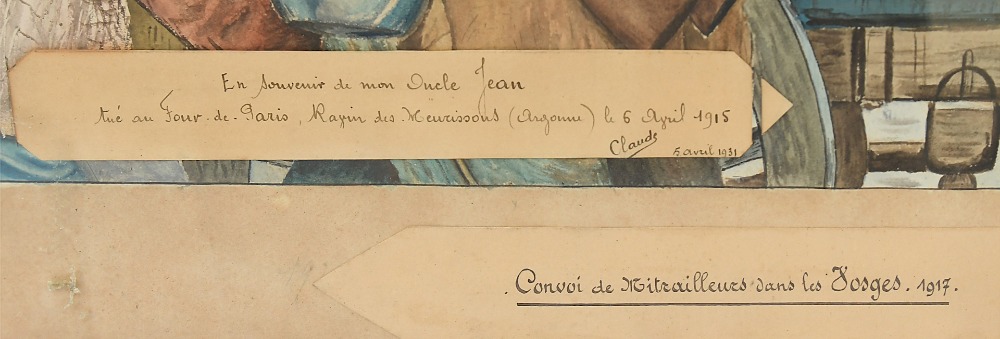 En souvenir de mon Oncle Jean
tué au Four-de-Paris, Ravin des Meurissons (Argonne) le 6 Avril 1915
Claude
5 avril 1931
Convoi de Mitrailleurs dans les Vosges. 1917.